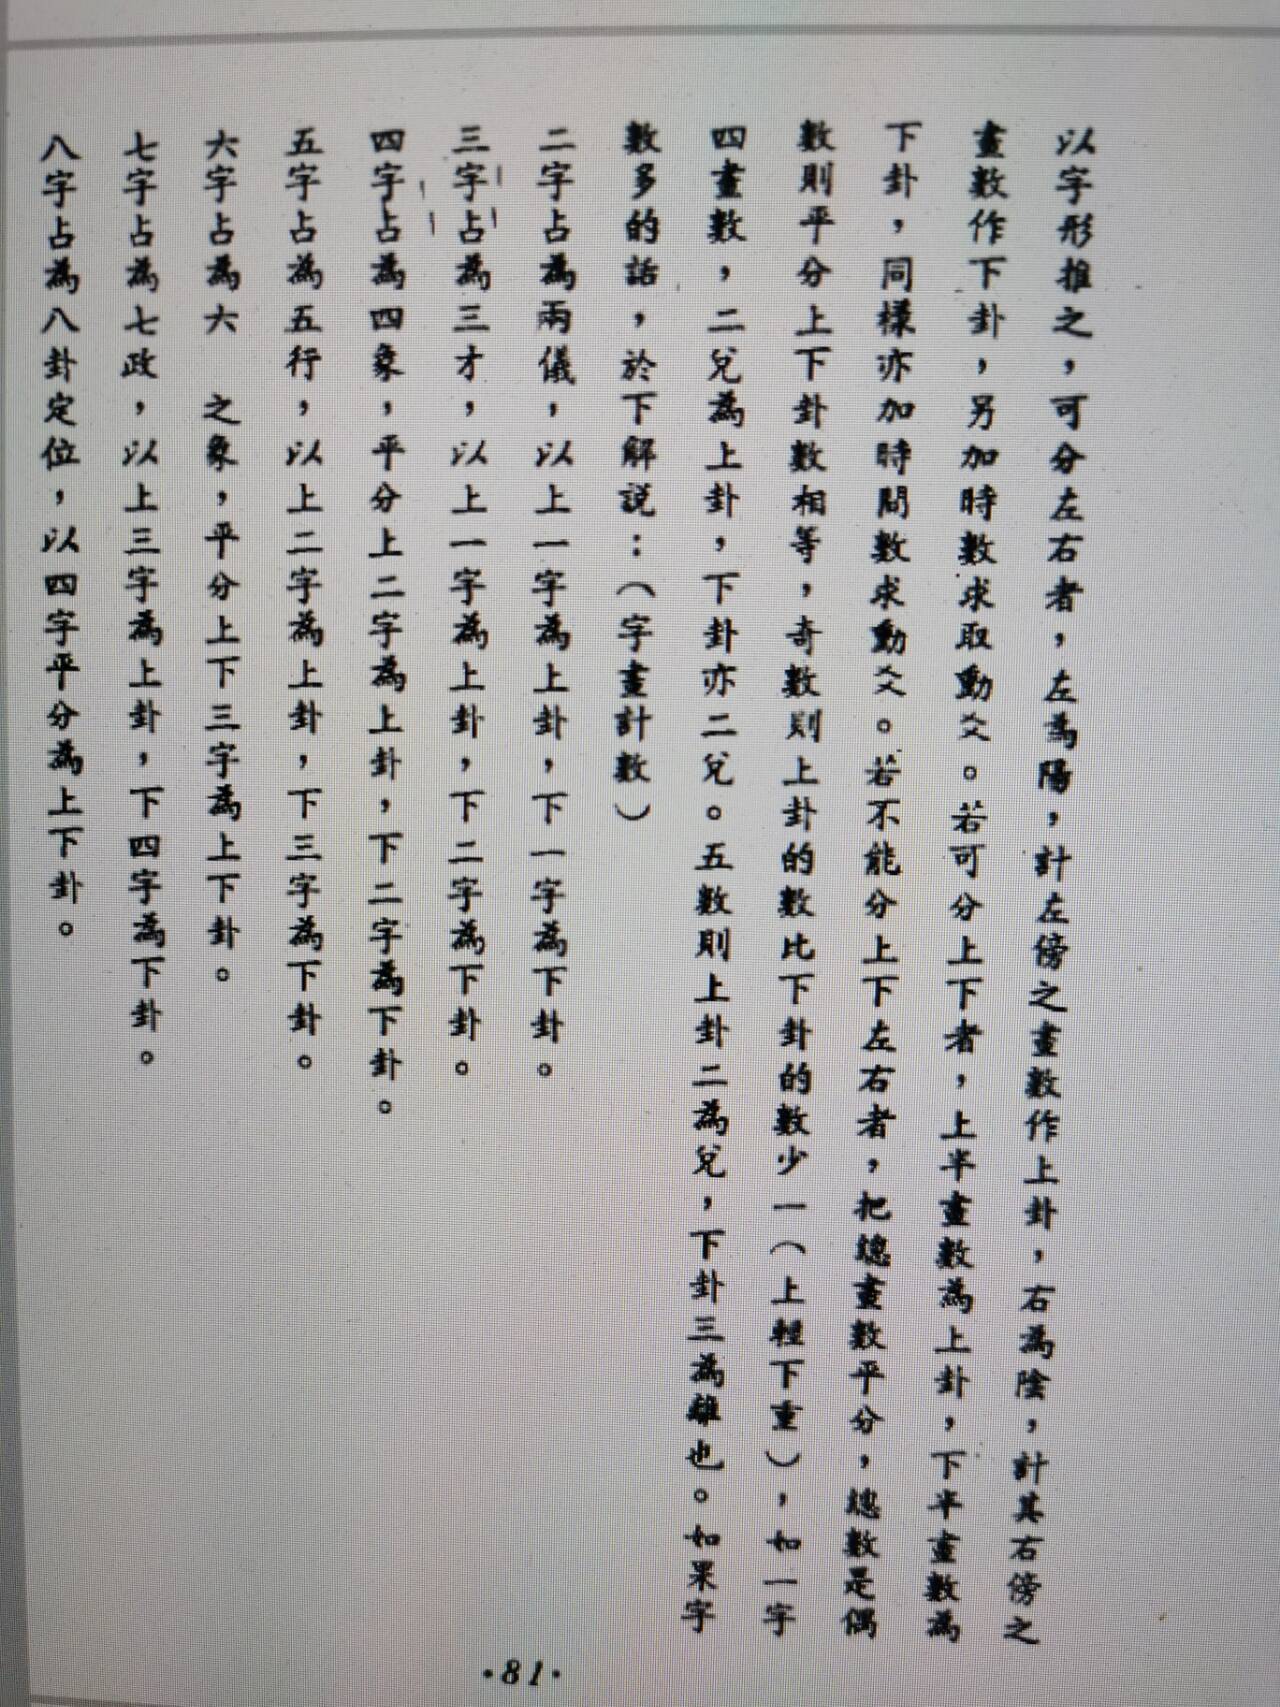 以字形推之，可分左右者，左為陽，計左傍之畫數作上卦，右為陰，計其右傍之
畫數作下卦，另加時數求取動爻。若可分上下者，上半畫數為上卦，下半畫數為
下卦，同樣亦加時間數求動爻。若不能分上下左右者，把總畫數平分，總數是偶
數則平分上下卦數相等，奇數則上卦的數比下卦的數少一（上輕下重），如一字
四畫數，二兌為上卦，下卦亦二兌。五數則上卦二為兌，下卦三為離也。如果字
數多的話，於下解說：（字畫計數）
二字占為兩儀，以上一字為上卦，下一字為下卦。
三字占為三才，以上一字為上卦，下二字為下卦。
四字占為四象，平分上二字為上卦，下二字為下卦。
五字占為五行，以上二字為上卦，下三字為下卦。
六字占為六　之象，平分上下三字為上下卦。
七字占為七政，以上三字為上卦，下四字為下卦。
八字占為八卦定位，以四字平分為上下卦。
·81·